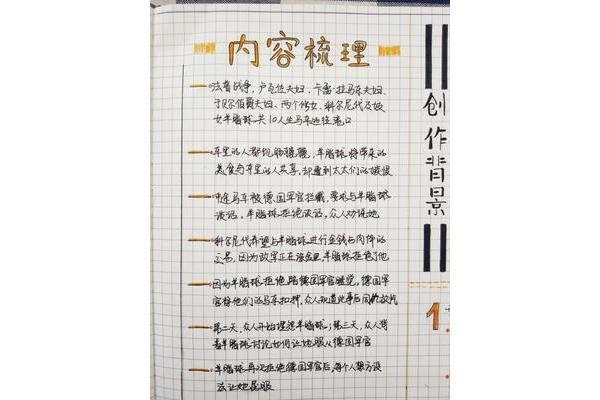 内容梳理
法普战争，卢瓦佐夫妇、卡雷·拉马东夫妇、
于贝尔伯爵夫妇、两个修女、科尔尼代及妓
女羊脂球共10人坐马车逃往港口
车里的人都饥肠辘辘，羊脂球将带来的
美食与车里的人共享，却遭到太太们的嫉恨
中途马车被德国军官拦截，要求与羊脂球
谈话，羊脂球拒绝谈话，众人劝说她
科尔尼代希望与羊脂球进行金钱与肉体的
交易，因为敌军正在旅舍里，羊脂球拒绝了他
因为羊脂球拒绝陪德国军官睡觉，德国军
官将他们的马车扣押，众人知道此事后同仇敌忾
第二天，众人开始埋怨羊脂球；第三天，众人背
着羊脂球讨论如何让她服从德国军官
羊脂球再次拒绝德国军官后，每个人想方设
法让她屈服
创作背景
1.